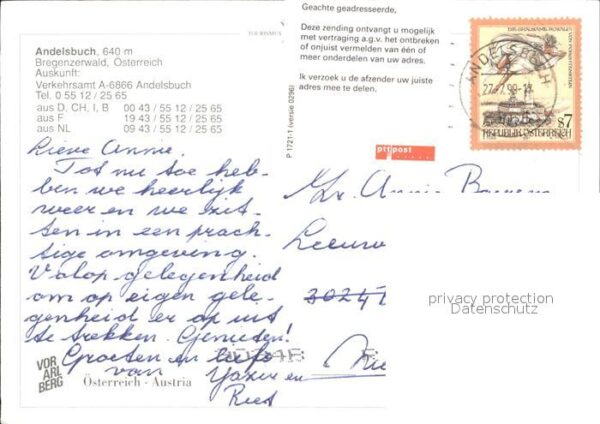 TOURISMUS
Andelsbuch, 640 m
Bregenzerwald, Österreich
Auskunft:
Verkehrsamt A-6866 Andelsbuch
Tel. 0 55 12 / 25 65
aus D, CH, I, B 00 43 / 55 12 / 25 65
aus F 19 43 / 55 12 / 25 65
aus NL 09 43 / 55 12 / 25 65
Lieve Annie.
Tot nu toe heb-
ben we heerlijk
weer en we zit-
ten in een prach-
tige omgeving.
Volop gelegenheid
om op eigen gele-
genheid er op uit
te trekken. Genieten!
Groeten en liefs
van
en
Riet
VOR
ARL
BERG
Österreich - Austria
Geachte geadresseerde,
Deze zending ontvangt u mogelijk
met vertraging a.g.v. het ontbreken
of onjuist vermelden van één of
meer onderdelen van uw adres.
Ik verzoek u de afzender uw juiste
adres mee te delen.
P 1721-1 (versie 0296)
ptt post
ANDELSBUCH
REPUBLIK ÖSTERREICH
S7
Annie
Leeuw
privacy protection
Datenschutz